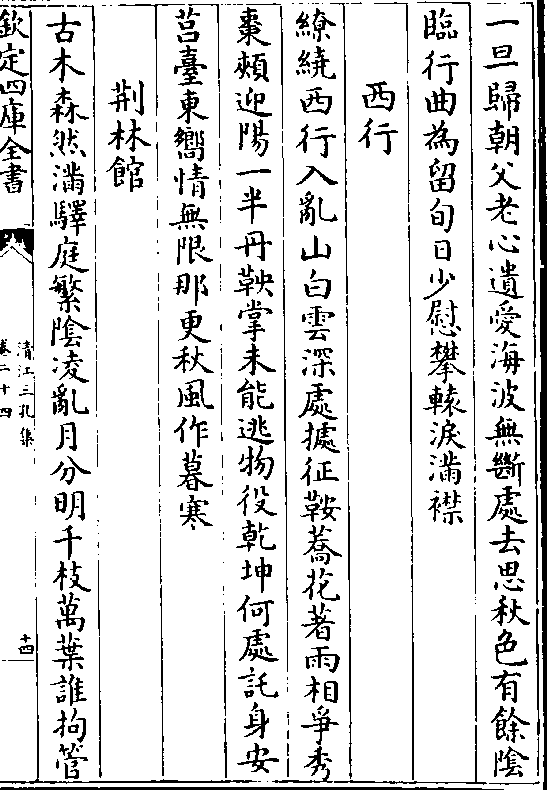 一旦歸朝父老心遺愛海波無斷處去思秋色有餘陰
臨行曲為留旬日少慰攀轅淚滿襟
西行
繚繞西行入亂山白雲深處據征鞍蕎花著雨相爭秀
棗頰迎陽一半丹鞅掌未能逃物役乾坤何處託身安
莒臺東嚮情無限那更秋風作暮寒
荆林館
古木森然滿驛庭繁陰凌亂月分明千枝萬葉誰拘管
欽定四庫全書
清江三孔集
卷二十四
十四